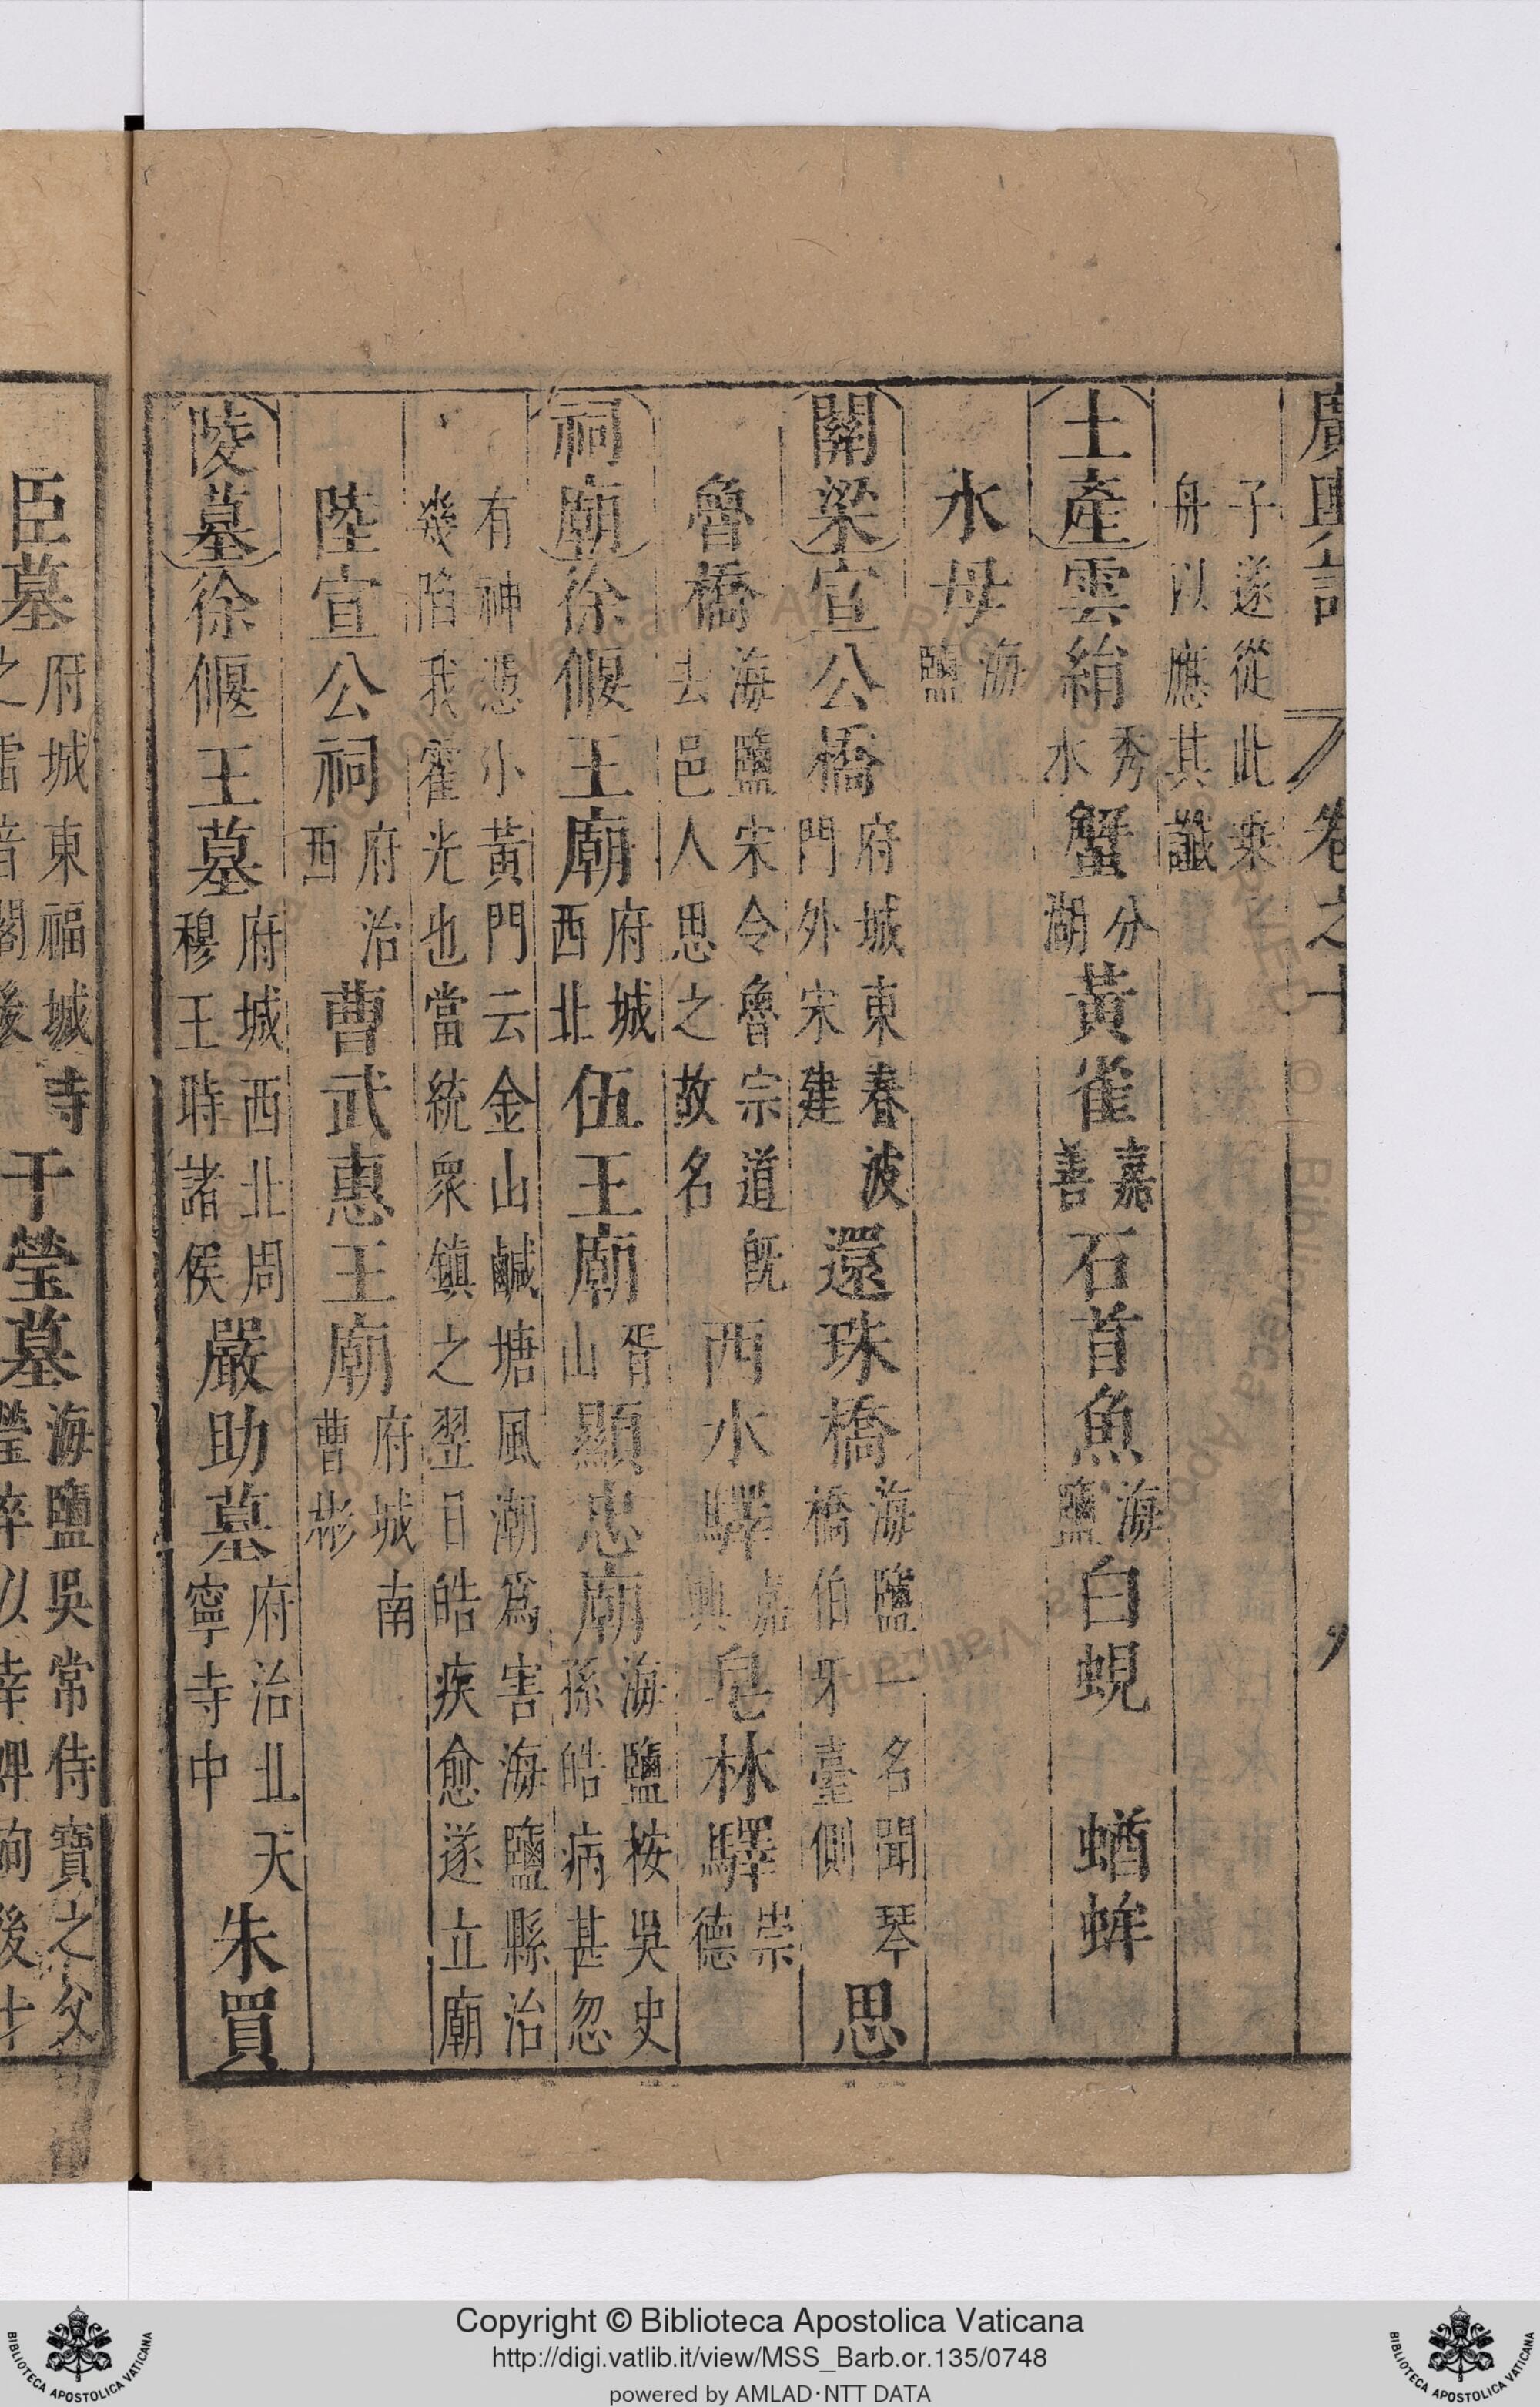 廣輿記 卷之十 八
子遂從此乗
舟以應其讖
土產雲絹秀水蟹分湖黃雀嘉善石首魚海鹽白蜆 蝤蛑
水母海鹽
關梁宣公橋府城東春波門外宋建還珠橋海鹽一名聞琴橋伯牙臺側思
魯橋海鹽宋令魯宗道旣去邑人思之故名西水驛嘉興皂林驛崇德
祠廟徐偃王廟府城西北伍王廟胥山顯忠廟海鹽按吳史孫皓病甚忽
有神憑小黃門云金山鹹塘風潮爲害海鹽縣治
幾陷我霍光也當統衆鎮之翌日皓疾愈遂立廟
陸宣公祠府治西曹武惠王廟府城南曹彬
陵墓徐偃王墓府城西北周穆王時諸侯嚴助墓府治北天寧寺中朱買
臣墓府城東福城寺
干瑩墓海鹽吳常侍寶之父
Copyright © Biblioteca Apostolica Vaticana
http://digi.vatlib.it/view/MSS_Barb.or.135/0748
powered by AMLAD·NTT DATA
BIBLIOTECA APOSTOLICA VATICANA
BIBLIOTECA APOSTOLICA VATICANA